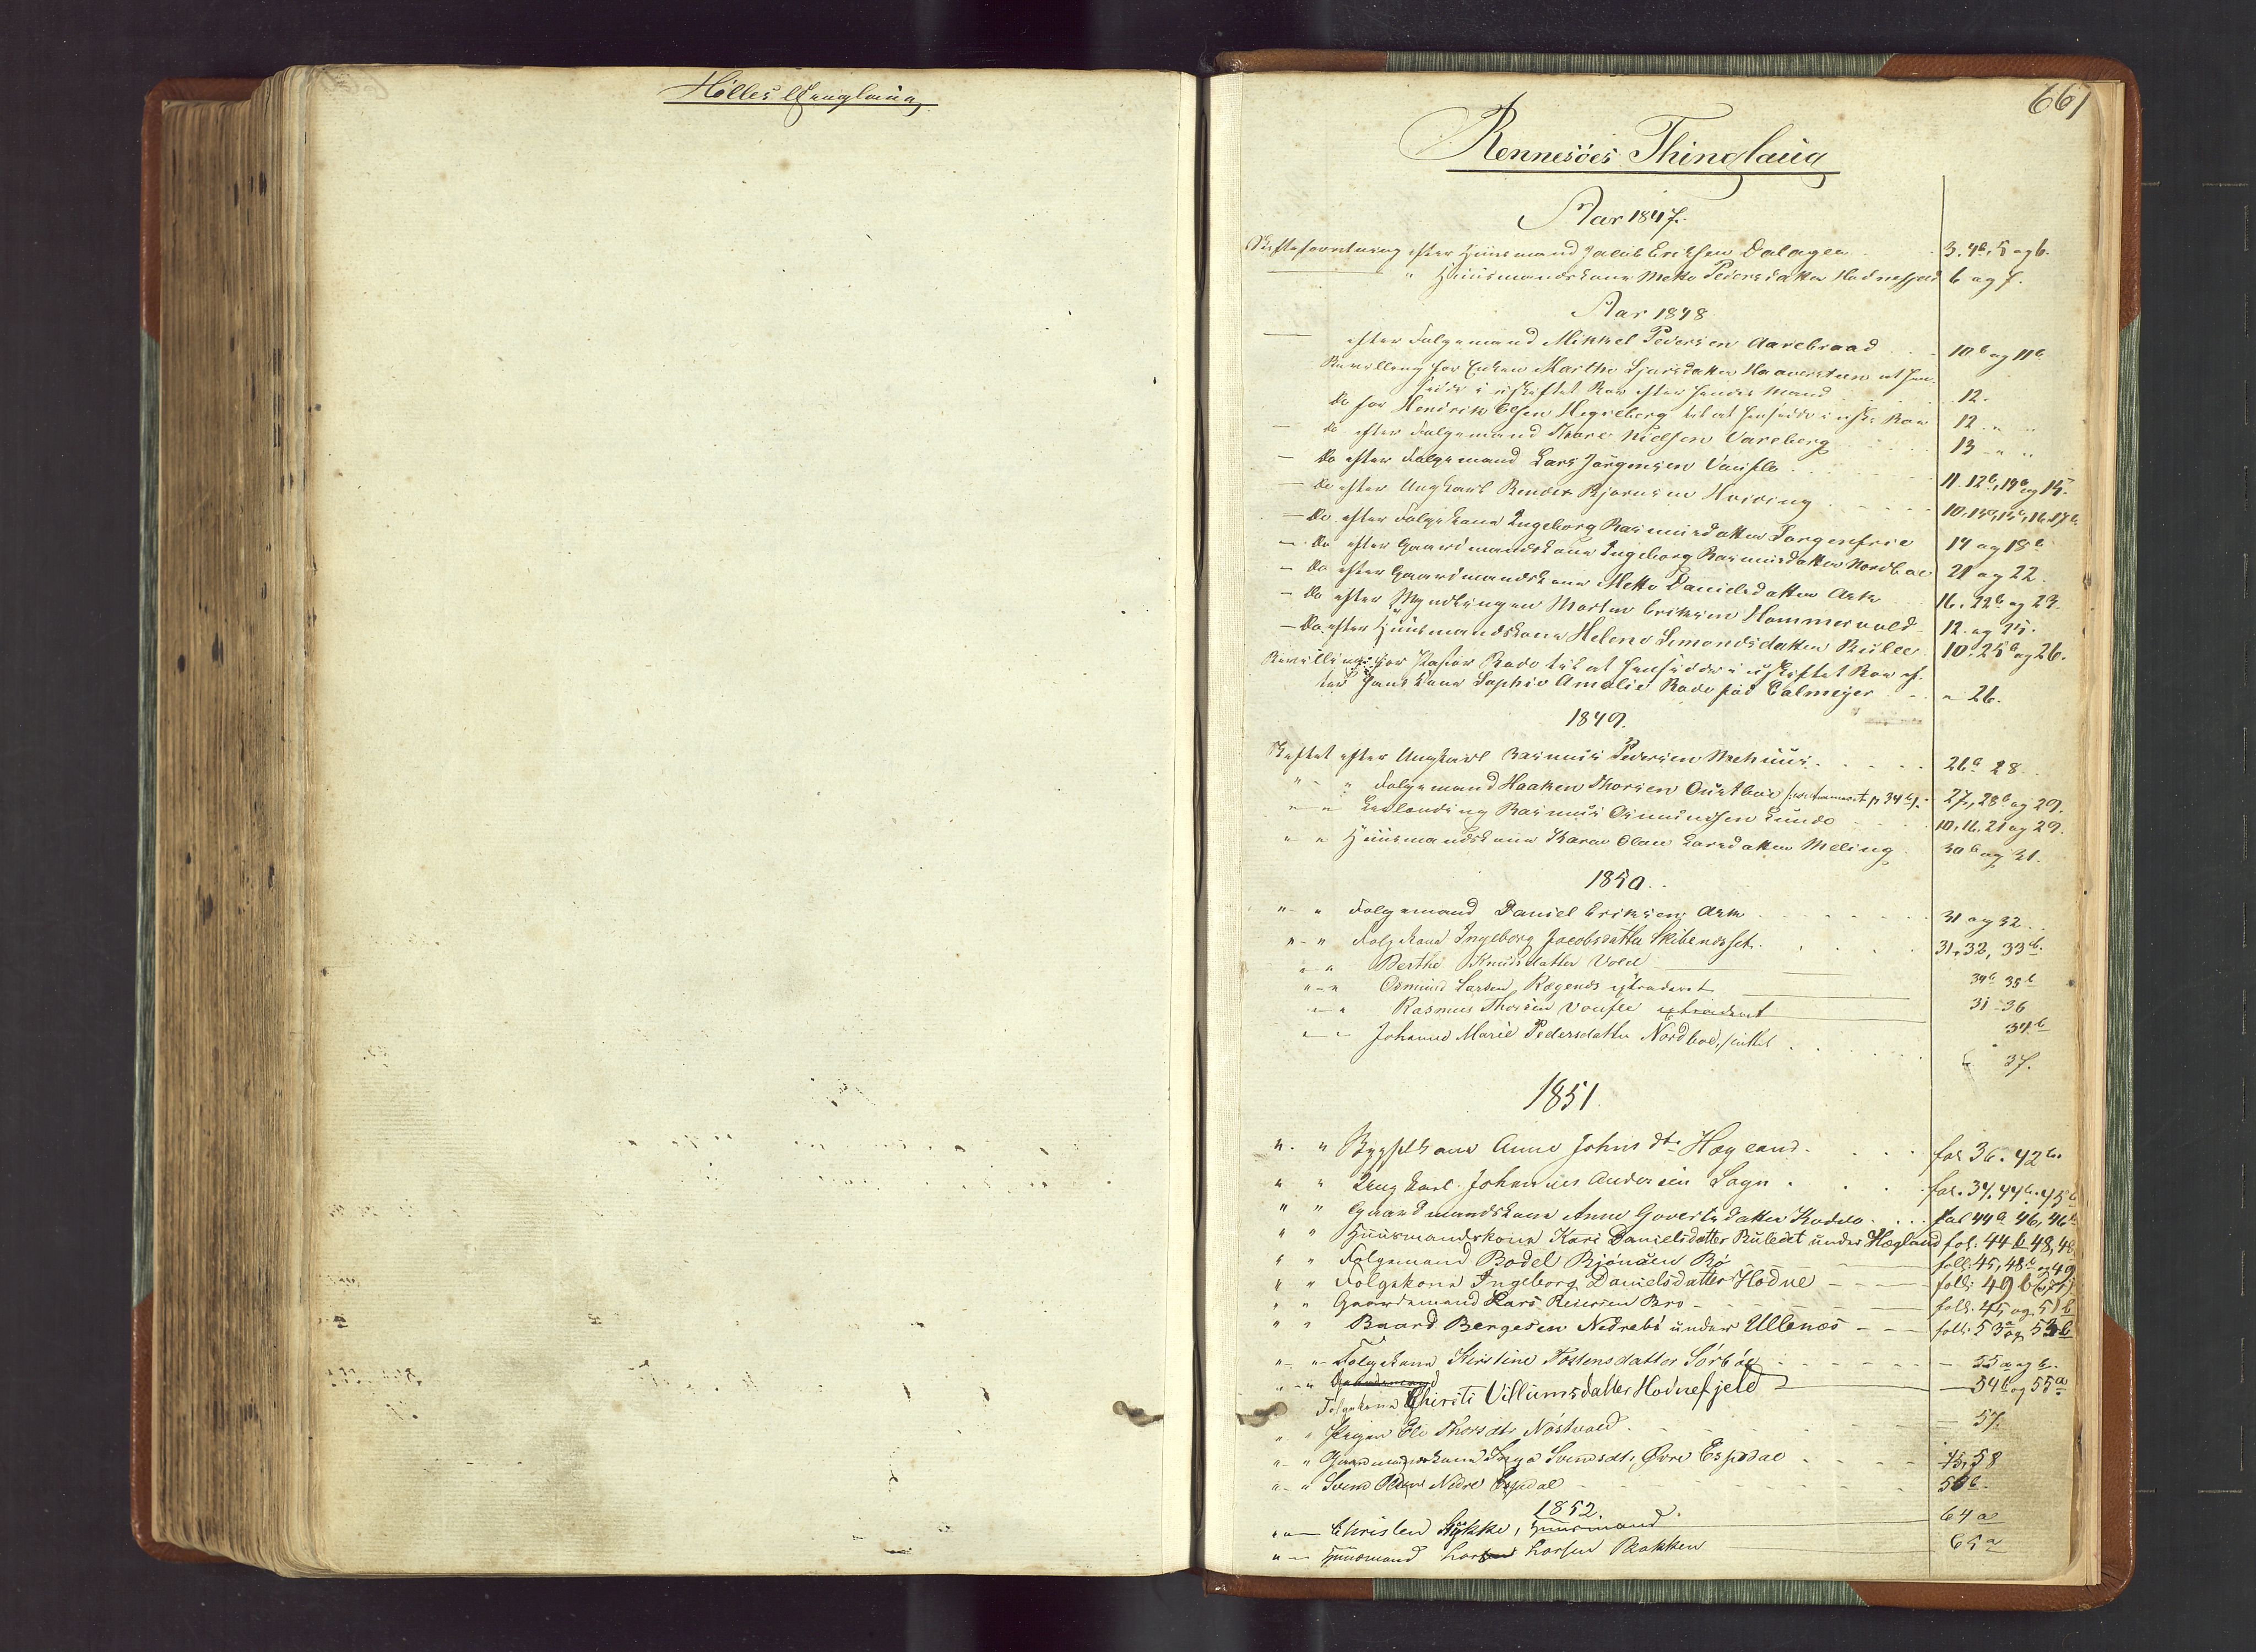 Hølles Thinglaug
667
Rennesöes Thinglaug
Aar 1847.
Skifteforretning efter Huusmand Jacob Eriksen Dalagen 3. 4b, 5 og 6.
" Huusmandskone Mette Pedersdatter Hodnefjeld 6 og 7.
Aar 1848
efter Folgemand Mikkel Pedersen Aarebraad 10b og 11b
Bevilling for Enken Marthe Gjørsdatter Haaversteen at hen-
sidde i uskiftet Boe efter hendes Mand 12.
Do for Hendrik Olsen Hegreberg til at hensidde i uskt. Boe 12 " "
Do efter Folgemand Thore Nielsen Vareberg 13 " "
Do efter Folgemand Lars Jørgensen Voufle 11. 12b, 14a og 15.
Do efter Ungkarl Reinert Bjørnsen Hviding
Do efter Folgekone Ingeborg Rasmusdatter Sorgenfrie 14 og 18b
Do efter Gaardmandskone Ingeborg Rasmusdatter Nordboe 21 og 22.
Do efter Gaardmandskone Mette Danielsdatter Ask 16, 22b og 23.
Do efter Myndlingen Morten Eriksen Hammervold 12 og 25.
Do efter Huusmandskone Helene Simonsdatter Rulee 10. 25b og 26.
Bevilling for Pastor Rode til at hensidde i uskiftet Boe ef-
ter hans Kone Sophie Amalie Rode fød Calmeyer " 26.
1849.
Skiftet efter Ungkarl Rasmus Pedersen Mehuus 26a 28
" " Folgemand Haaken Thorsen Oustboe 27, 28b og 29.
" " Rasmus Osmundsen Lunde 10, 16, 21 og 29.
" " Huusmandskone Karen Olene Larsdatter Meling 30b og 31.
1850.
" " Folgemand Daniel Eriksen Ask 31 og 32
" " Folgekone Ingeborg Jacobsdatter Skibenesset 31, 32, 33b.
" " Berthe Knudsdatter Vold 34b 35b
" " Osmund Larsen Rægenes extraderet 31-36
" " Rasmus Thorsen Voufle extraderet 34b
" " Johanne Marie Pedersdatter Nordboe, sluttet 37.
1851
" " Bygselkone Anne Johns dtr Hægland fol 36. 42b.
" " Ungkarl Johannes Andersen Sogn fol. 37. 44b. 45b
" " Gaardmandskone Anne Govertsdatter Hodne fol 44a 46, 46b
" " Huusmandskone Kari Danielsdatter Rulent under Hægland fol. 44b 48, 48
" " Folgemand Bodel Bjønsen Bø foll: 45, 48b og 49
" " Folgekone Ingeborg Danielsdatter Hodne foll: 49b
" " Gaardmand Lars Pedersen Bro foll. 45 og 51b
" " Baard Bergesen Nedrebø under Ullenæs foll: 53a og 53b
" " Folgekone Kirstine Tostensdatter Sörbøe 55a og b.
" " Gaardmand
Folgekone Chirsti Villumsdatter Hodnefjeld 54b og 55a
" " Pigen Eli Thorsdtr Nöstvold 57.
" " Gaardmandskone Inga Svendsdtr Øvre Espedal 43, 58
" " Svend Olsen Nedre Espedal 58b.
1852.
" " Christen Stykke, Huusmand 64a
" " Huusmand Lars Larsen Bakken 65a